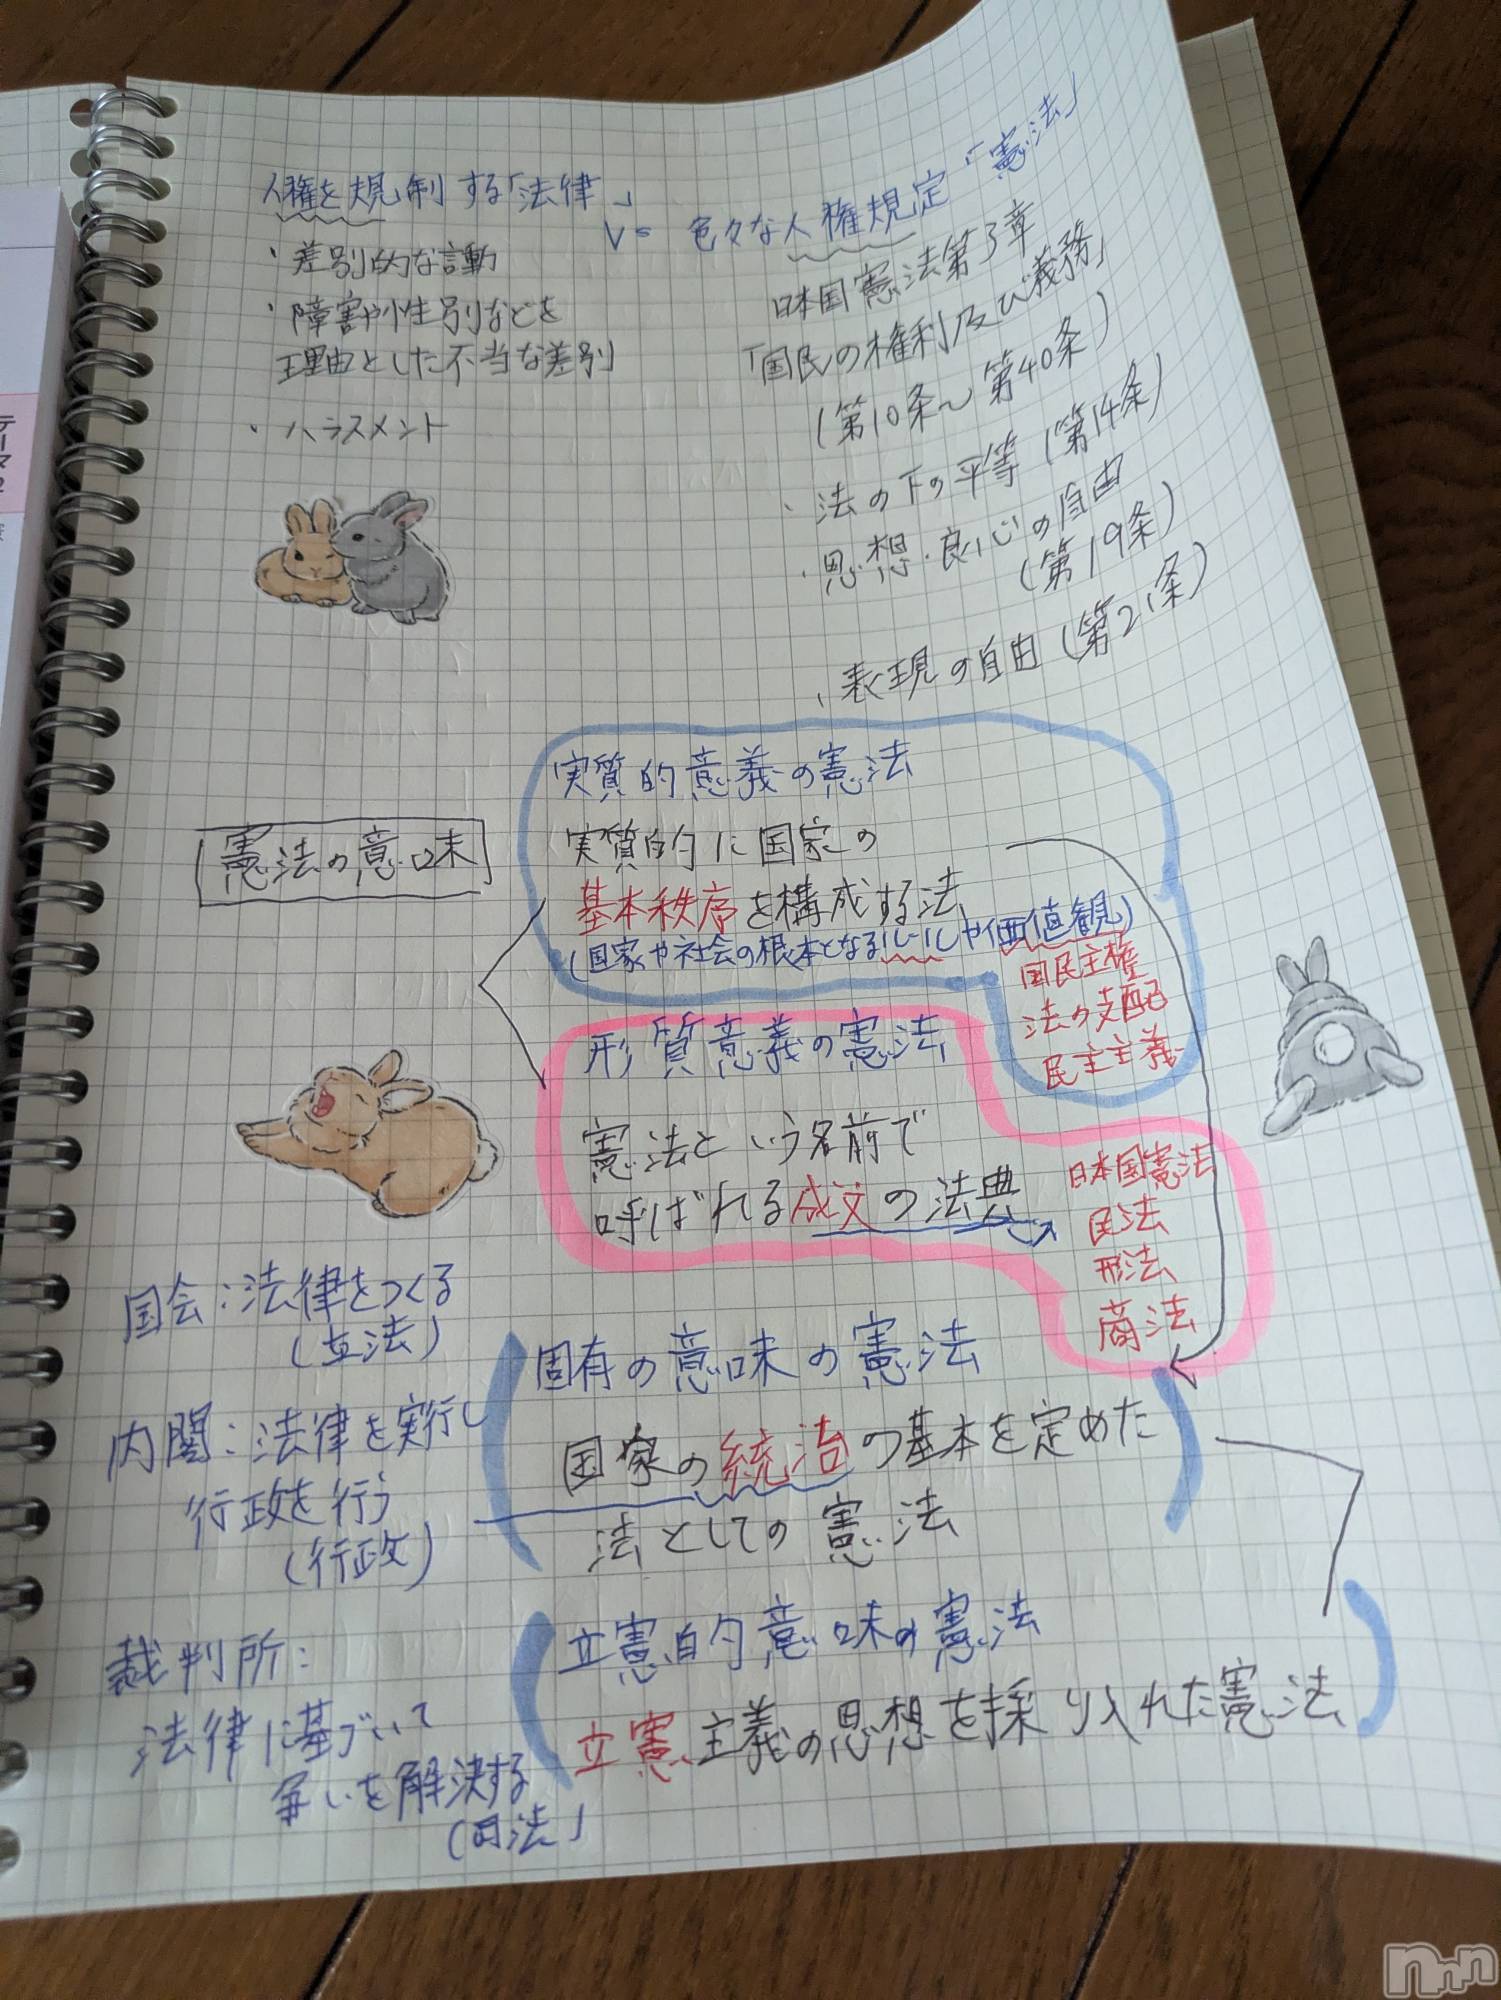 人権を規制する「法律」
・差別的な言動
・障害や性別などを
理由とした不当な差別
・ハラスメント
V= 色々な人権規定「憲法」
日本国憲法第3章
「国民の権利及び義務」
(第10条～第40条)
・法の下の平等(第14条)
・思想・良心の自由
(第19条)
、表現の自由(第21条)
憲法の意味
実質的意義の憲法
実質的に国家の
基本秩序を構成する法
(国家や社会の根本となるルールや価値観)
国民主権
法の支配
民主主義
形質意義の憲法
憲法という名前で
呼ばれる成文の法典
日本国憲法
民法
形法
商法
国会:法律をつくる
(立法)
内閣:法律を実行し
行政を行う
(行政)
裁判所:
法律に基づいて
争いを解決する
(司法」
固有の意味の憲法
国家の統治の基本を定めた
法としての憲法
立憲的意味の憲法
立憲主義の思想を採り入れた憲法
テーマ2
nnn